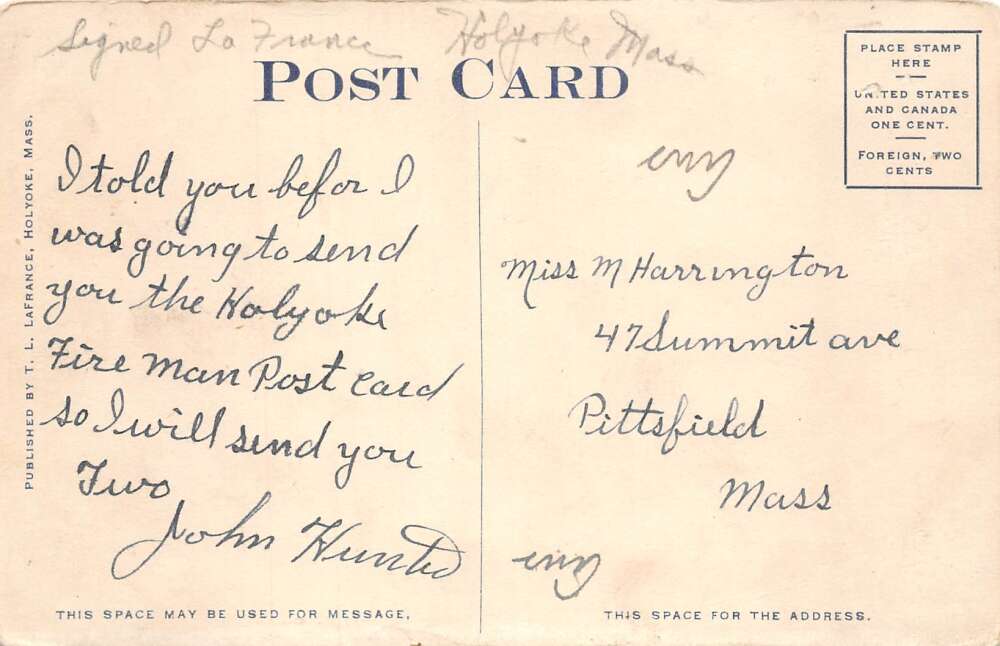 Signed La France Holyoke Mass
POST CARD
PLACE STAMP
HERE
UNITED STATES
AND CANADA
ONE CENT.
FOREIGN, TWO
CENTS
PUBLISHED BY T. L. LAFRANCE, HOLYOKE, MASS.
I told you befor I
was going to send
you the Holyoke
Fire Man Post Card
so I will send you
Two
John Hunter
Miss M Harrington
47 Summit ave
Pittsfield
Mass
THIS SPACE MAY BE USED FOR MESSAGE.
THIS SPACE FOR THE ADDRESS.